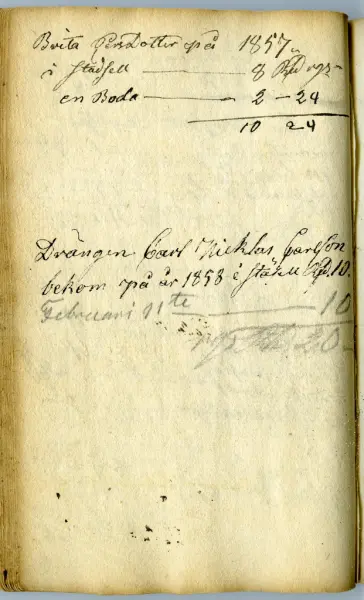 Brita Persdotter på 1857
i städsell — 8 Rd rgs
en Boda — 2 — 24
10 24
Drängen Carl Nicklas Carlson
bekom på år 1858 i städsell Rd. 10.
Februari 11te — 10
20